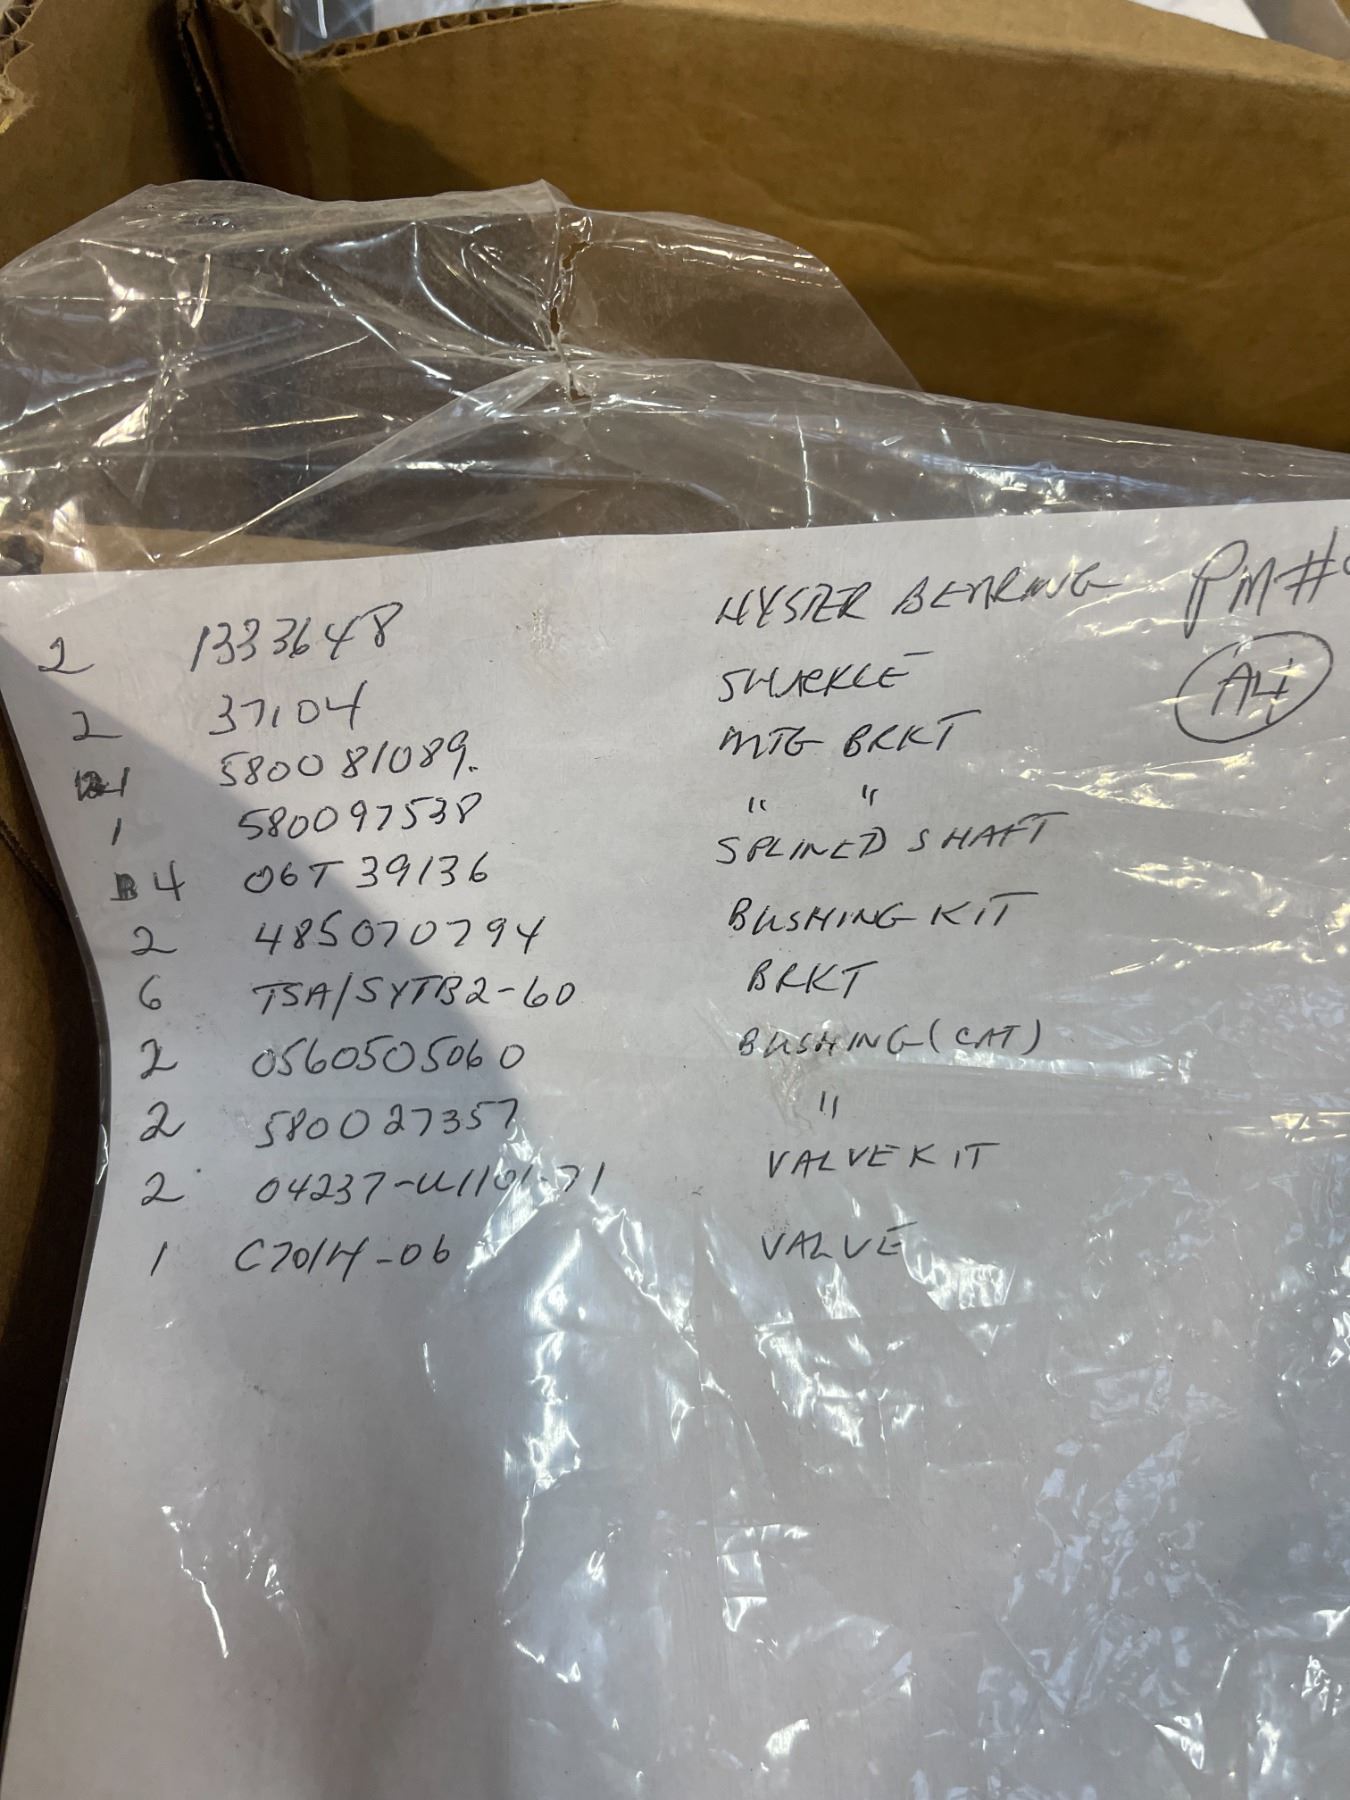 2 1333648 HYSTER BEARING PM#
2 37104 SHACKLE A4
1 580081089. MTG BRKT
1 580097538 " "
4 06T39136 SPLINED SHAFT
2 485070794 BUSHING KIT
6 TSA/SYTB2-60 BRKT
2 0560505060 BUSHING (CAT)
2 580027357 "
2 04237-U1101-71 VALVE KIT
1 C7014-06 VALVE